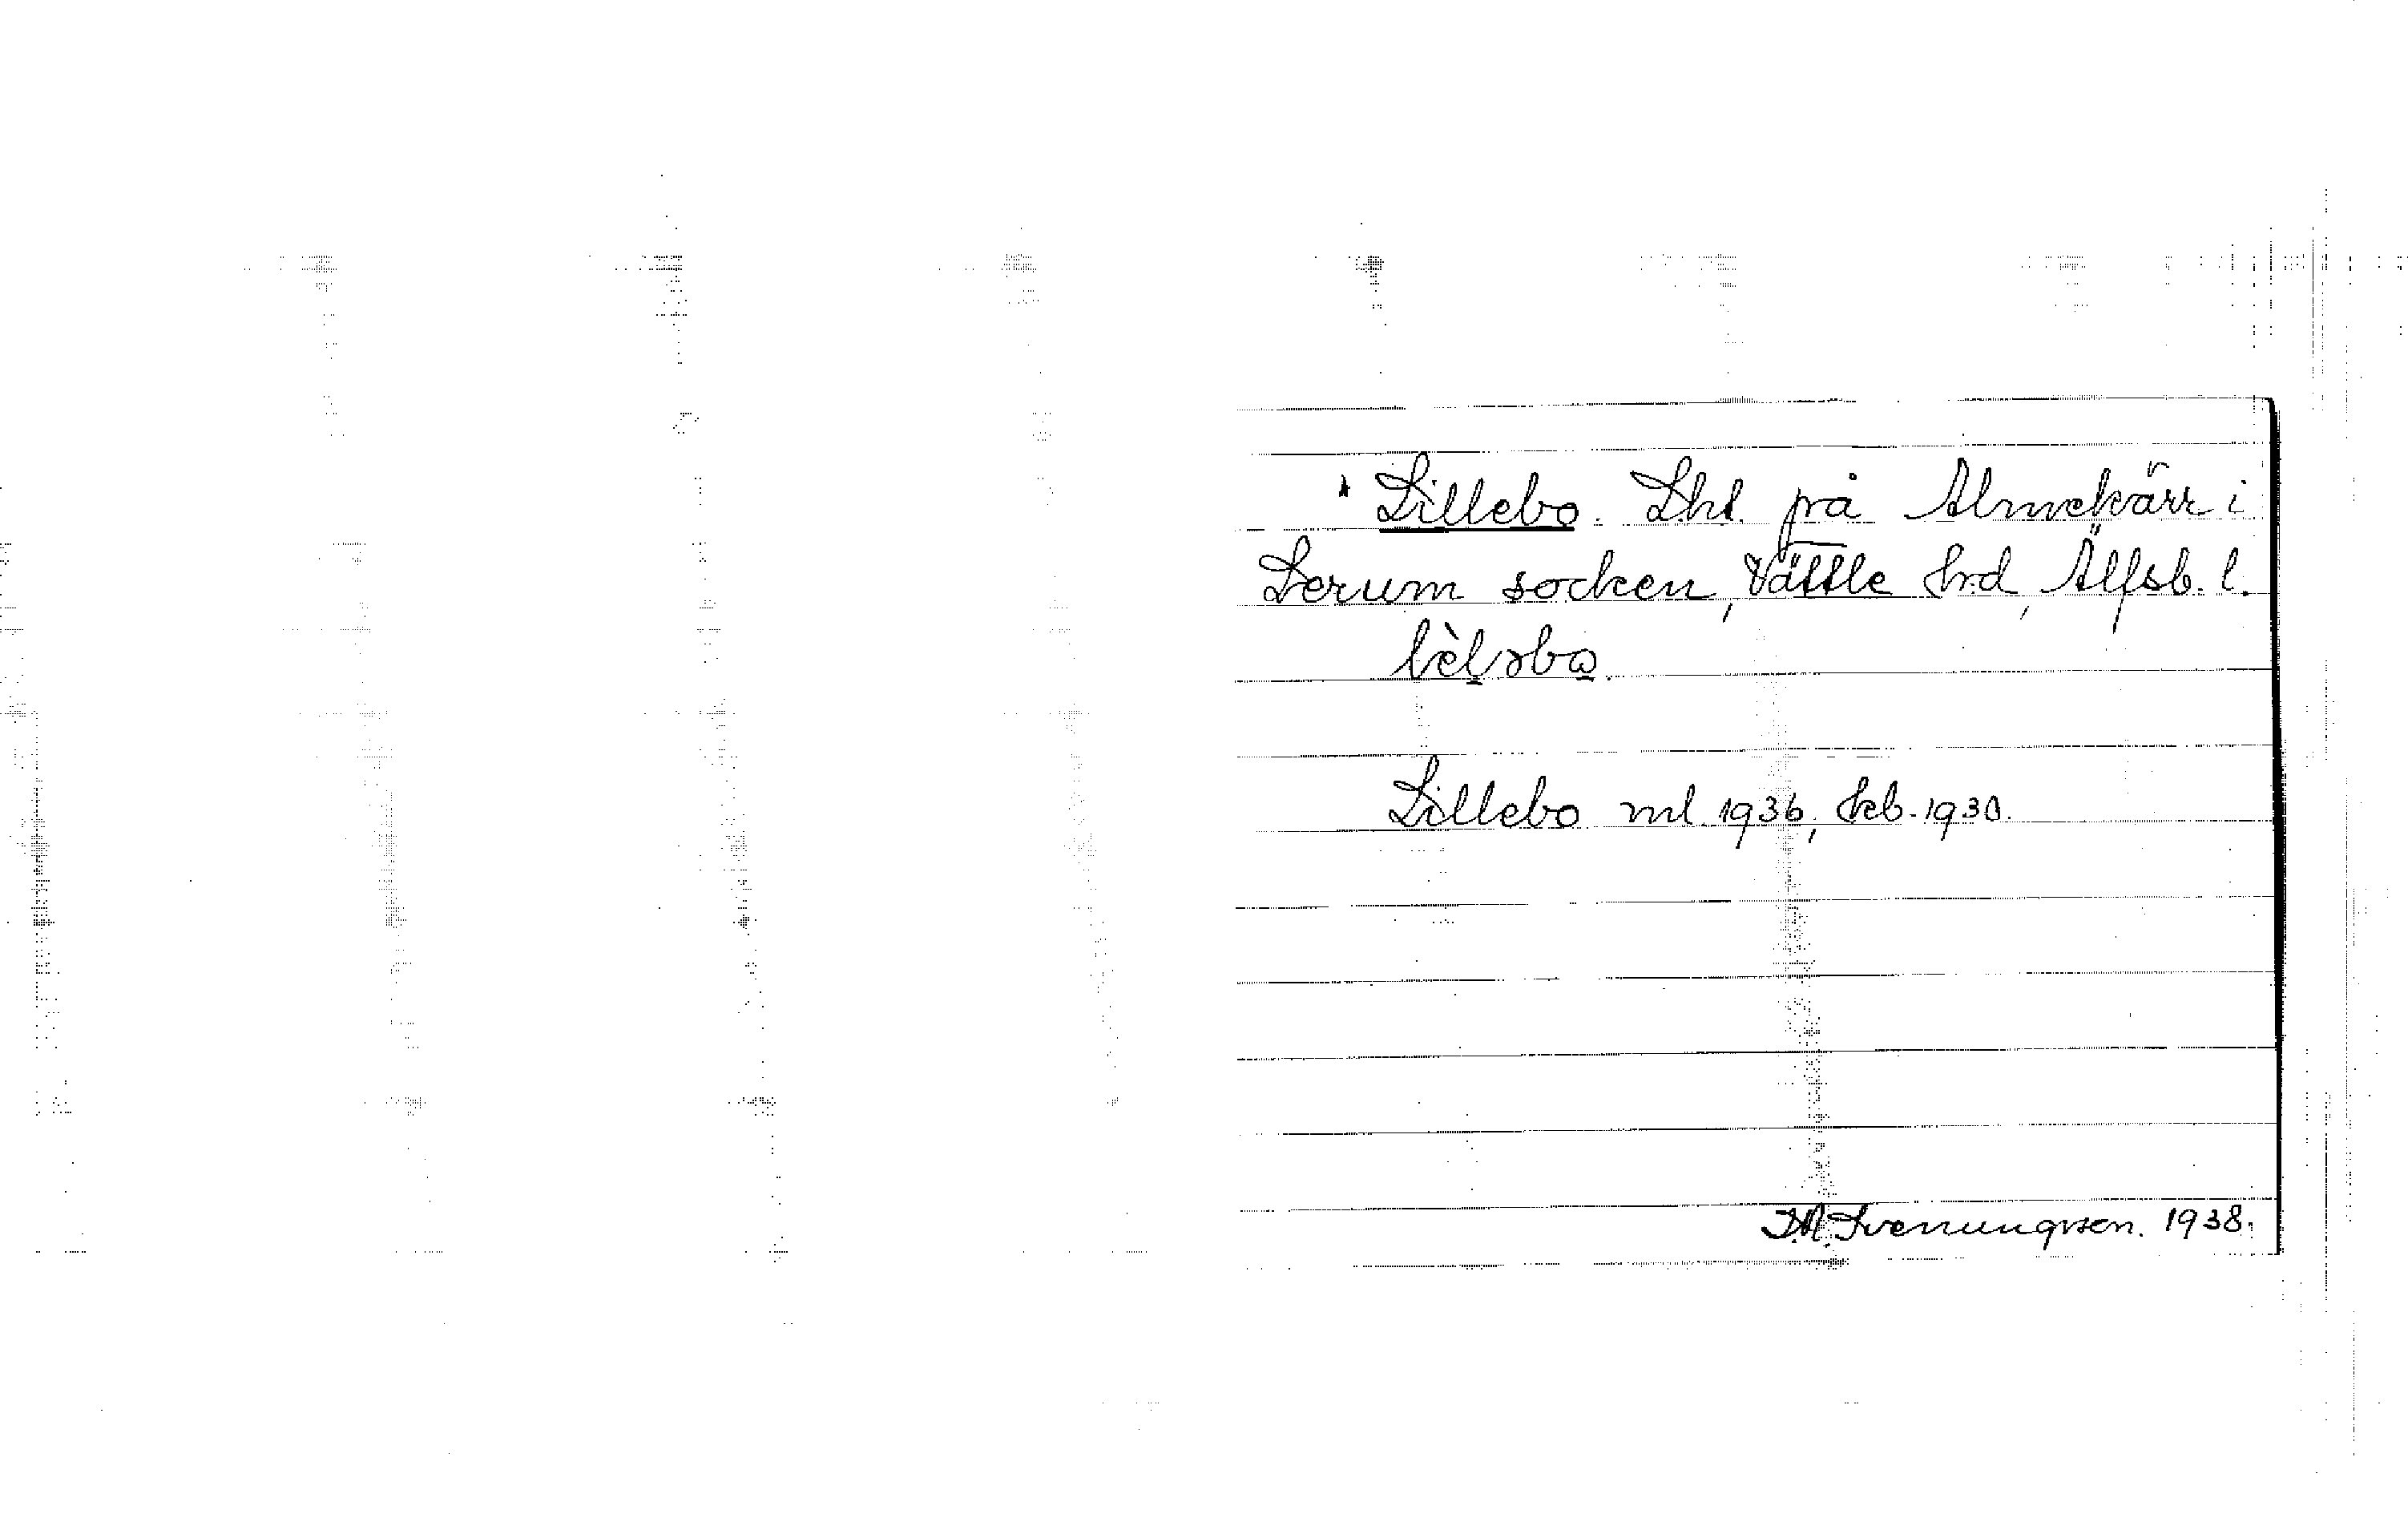 Lillebo. Lht. på Almekärr i
Lerum socken, Vättle hrd, Älfsb. l.
Lillebo ml. 1936, hkb. 1930.
J.A. Svenungsson. 1938.